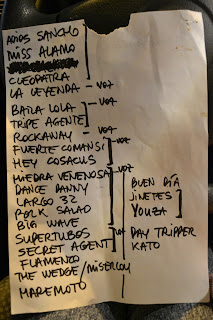 ADIOS SANCHO
MISS ALAMO
CLEOPATRA
LA LEYENDA - VOZ
BAILA LOLA - VOZ
TRIPE AGENTE
ROCKANAY - VOZ
FUERTE COMANSI
HEY COSACUS - VOZ
HIEDRA VENENOSA
DANCE DANNY
LARGO 32
PORK SALAD
BIG WAVE
SUPERTUBOS
SECRET AGENT
FLAMENCO
THE WEDGE / MISERLOU
MAREMOTO
BUEN DÍA
JINETES
YOUZA
DAY TRIPPER
KATO